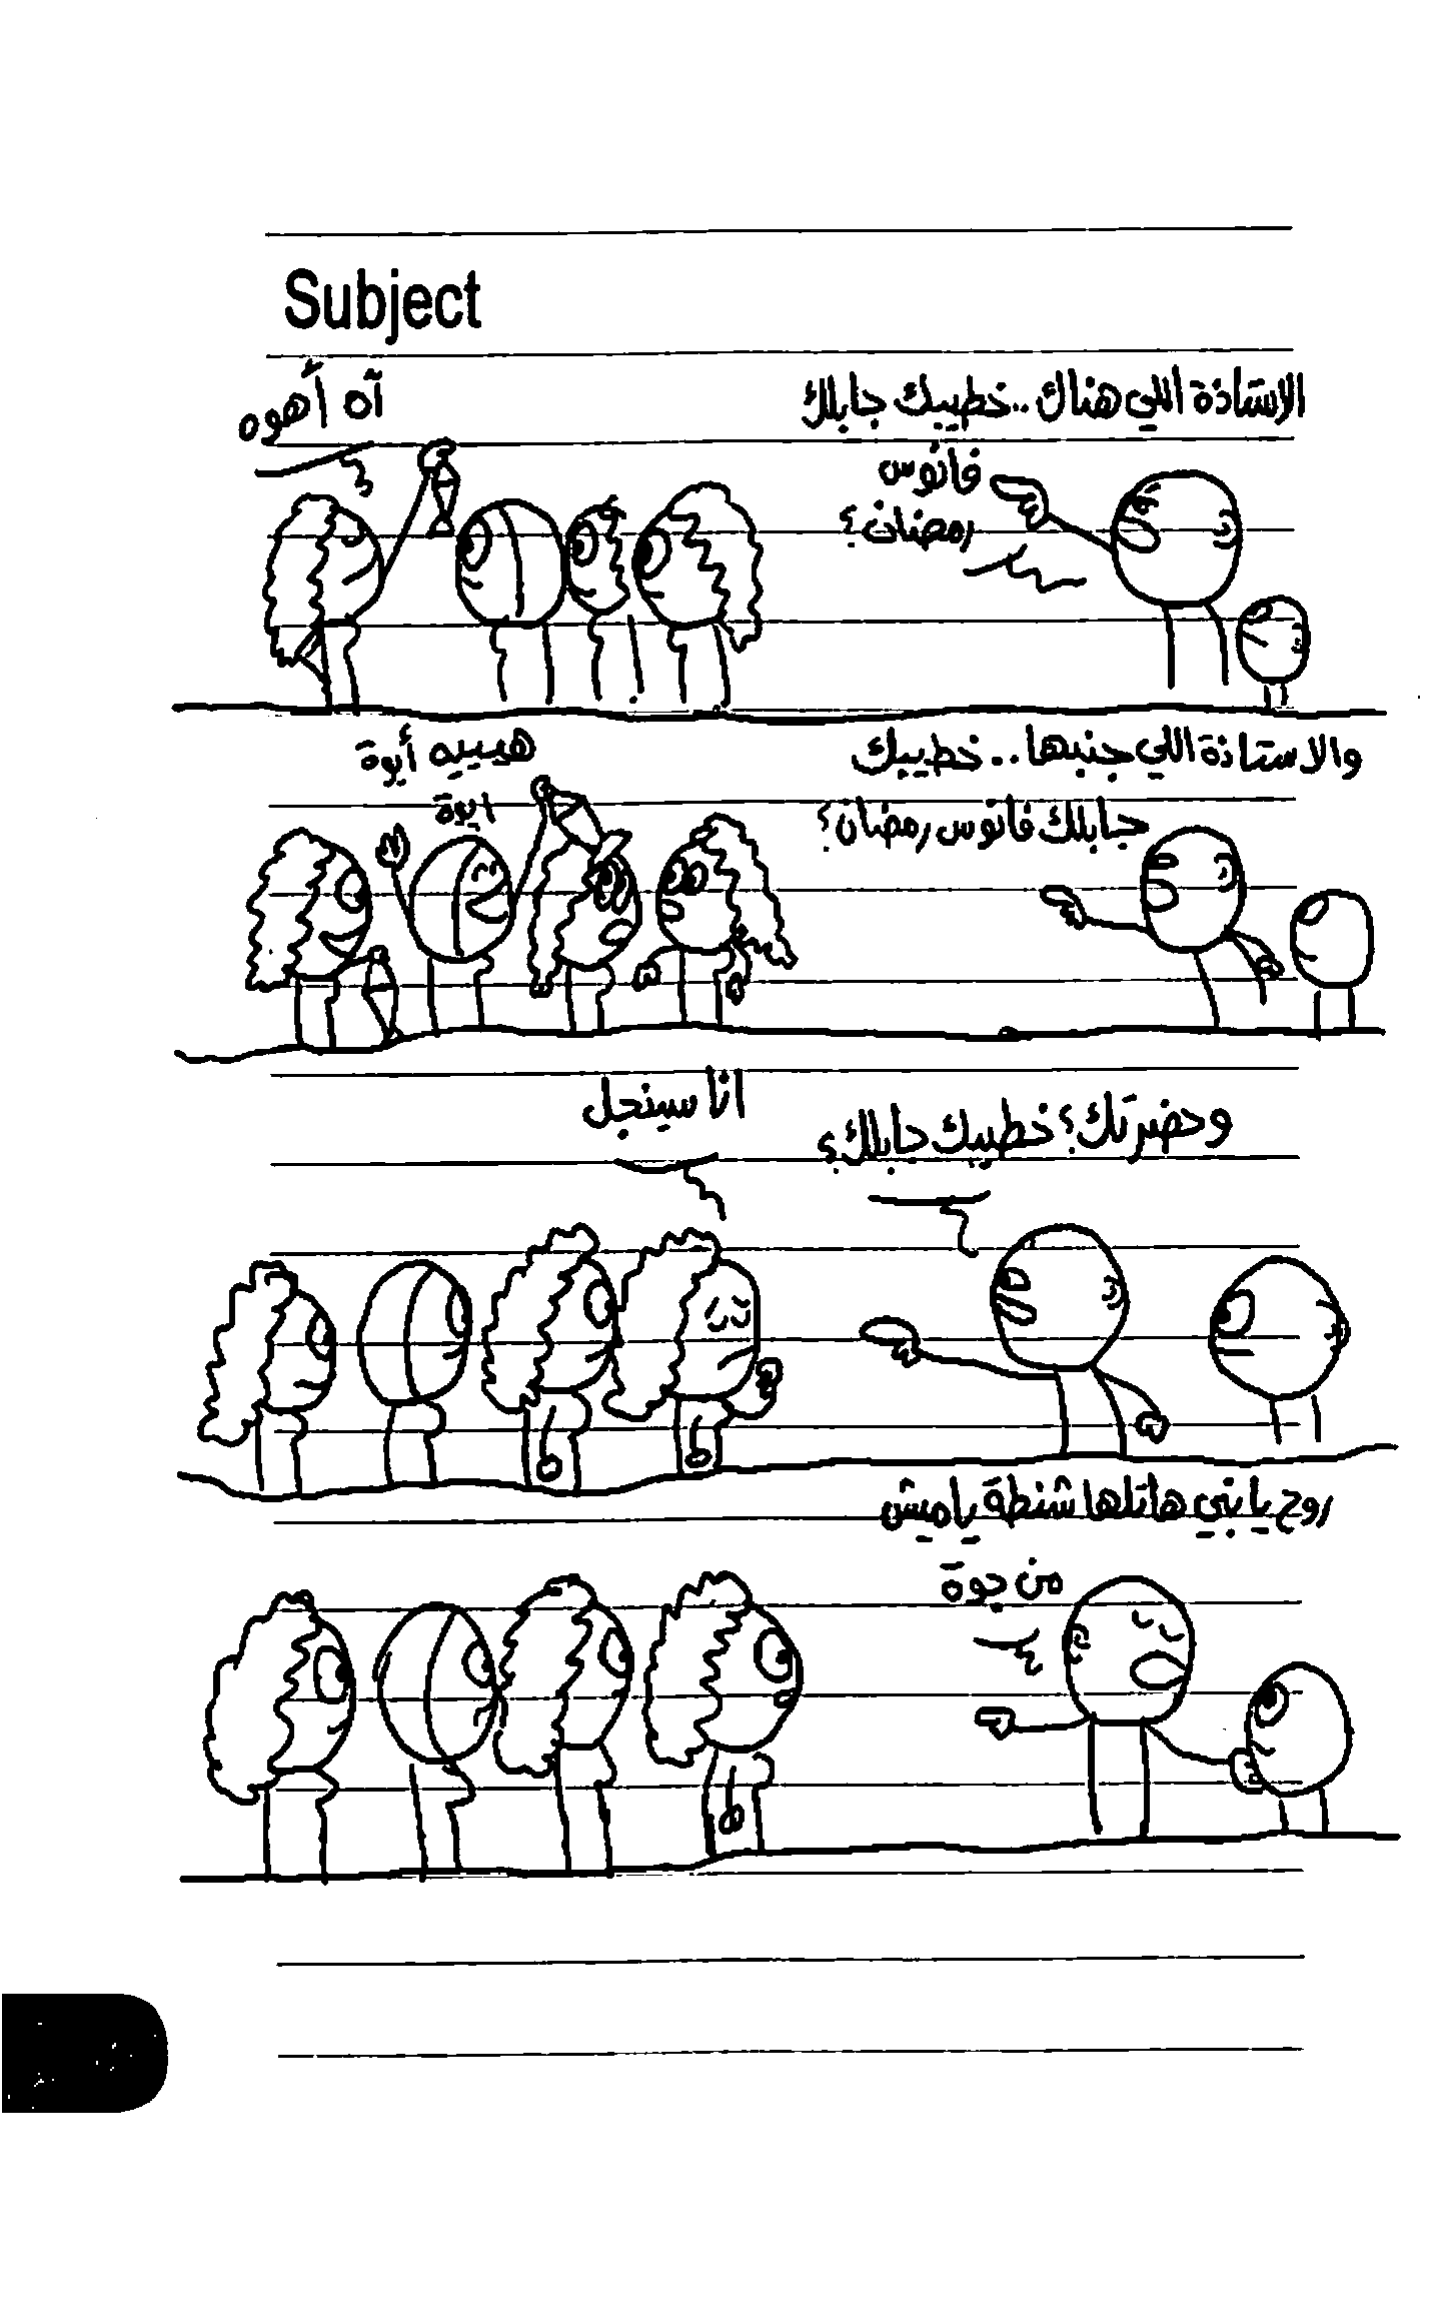 Subject
الاستاذة اللي هناك.. خطيبك جابلك
فانوس
رمضان؟
آه أهوه
والاستاذة اللي جنبها.. خطيبك
جابلك فانوس رمضان؟
هيييه أيوة
ايوة
وحضرتك؟ خطيبك جابلك؟
انا سينجل
روح يا بني هاتلها شنطة ياميش
من جوة